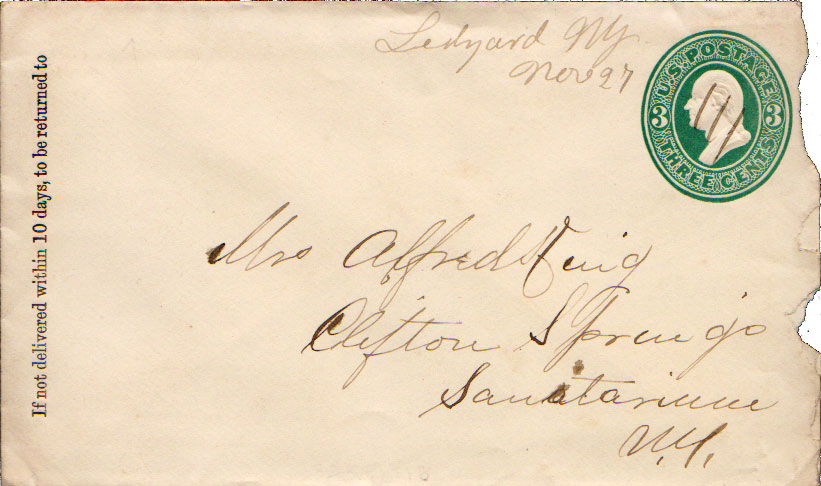 If not delivered within 10 days, to be returned to
Ledyard NY.
Nov 27
U.S. POSTAGE
3 3
THREE CENTS
Mrs Alfred King
Clifton Springs
Sanatarium
N.Y.